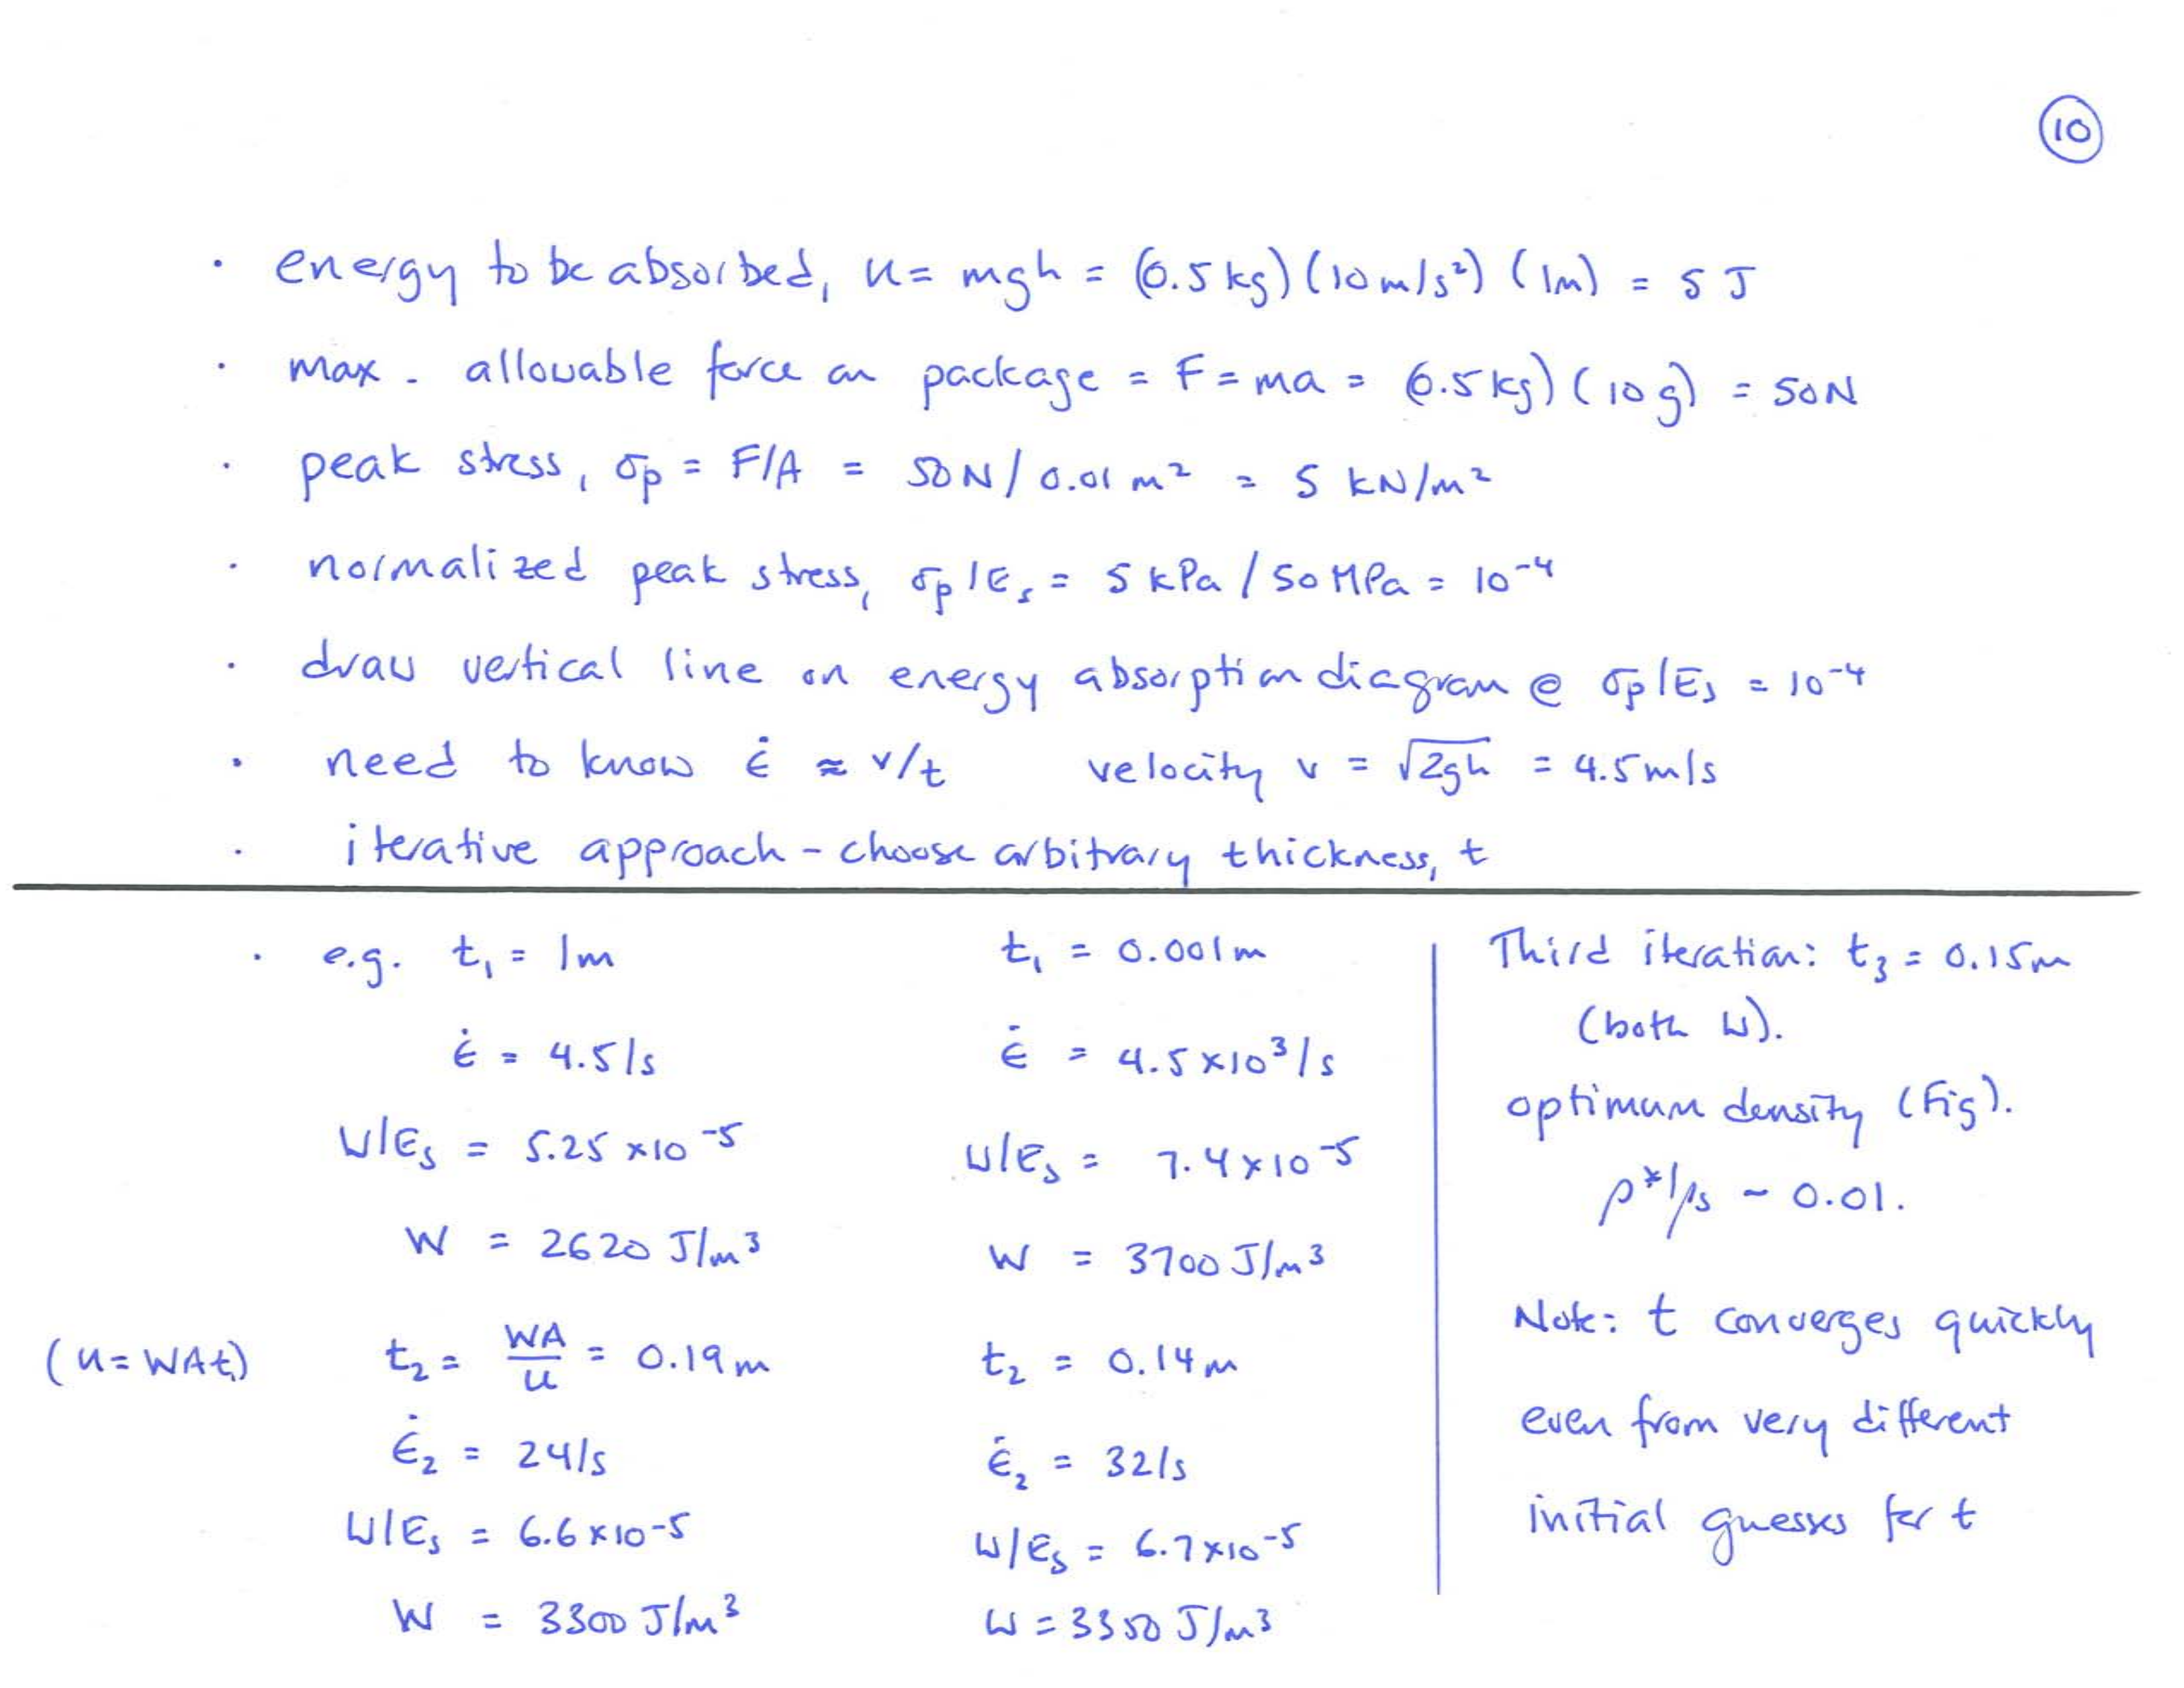 10
· energy to be absorbed, u = mgh = (0.5 kg) (10 m/s²) (1m) = 5 J
· max. allowable force on package = F = ma = (0.5 kg) (10 g) = 50N
· peak stress, σp = F/A = 50 N / 0.01 m² = 5 kN/m²
· normalized peak stress, σp/Es = 5 kPa / 50 MPa = 10⁻⁴
· draw vertical line on energy absorption diagram @ σp/Es = 10⁻⁴
· need to know ε̇ ≈ v/t velocity v = √2gh = 4.5 m/s
· iterative approach - choose arbitrary thickness, t
· e.g. t₁ = 1m
ε̇ = 4.5/s
W/Es = 5.25 × 10⁻⁵
W = 2620 J/m³
(u = WAt) t₂ = WA/u = 0.19 m
ε̇₂ = 24/s
W/Es = 6.6 × 10⁻⁵
W = 3300 J/m³
t₁ = 0.001m
ε̇ = 4.5 × 10³/s
W/Es = 7.4 × 10⁻⁵
W = 3700 J/m³
t₂ = 0.14 m
ε̇₂ = 32/s
W/Es = 6.7 × 10⁻⁵
W = 3350 J/m³
Third iteration: t₃ = 0.15m
(both W).
optimum density (Fig).
ρ*/ρs ~ 0.01.
Note: t converges quickly
even from very different
initial guesses for t